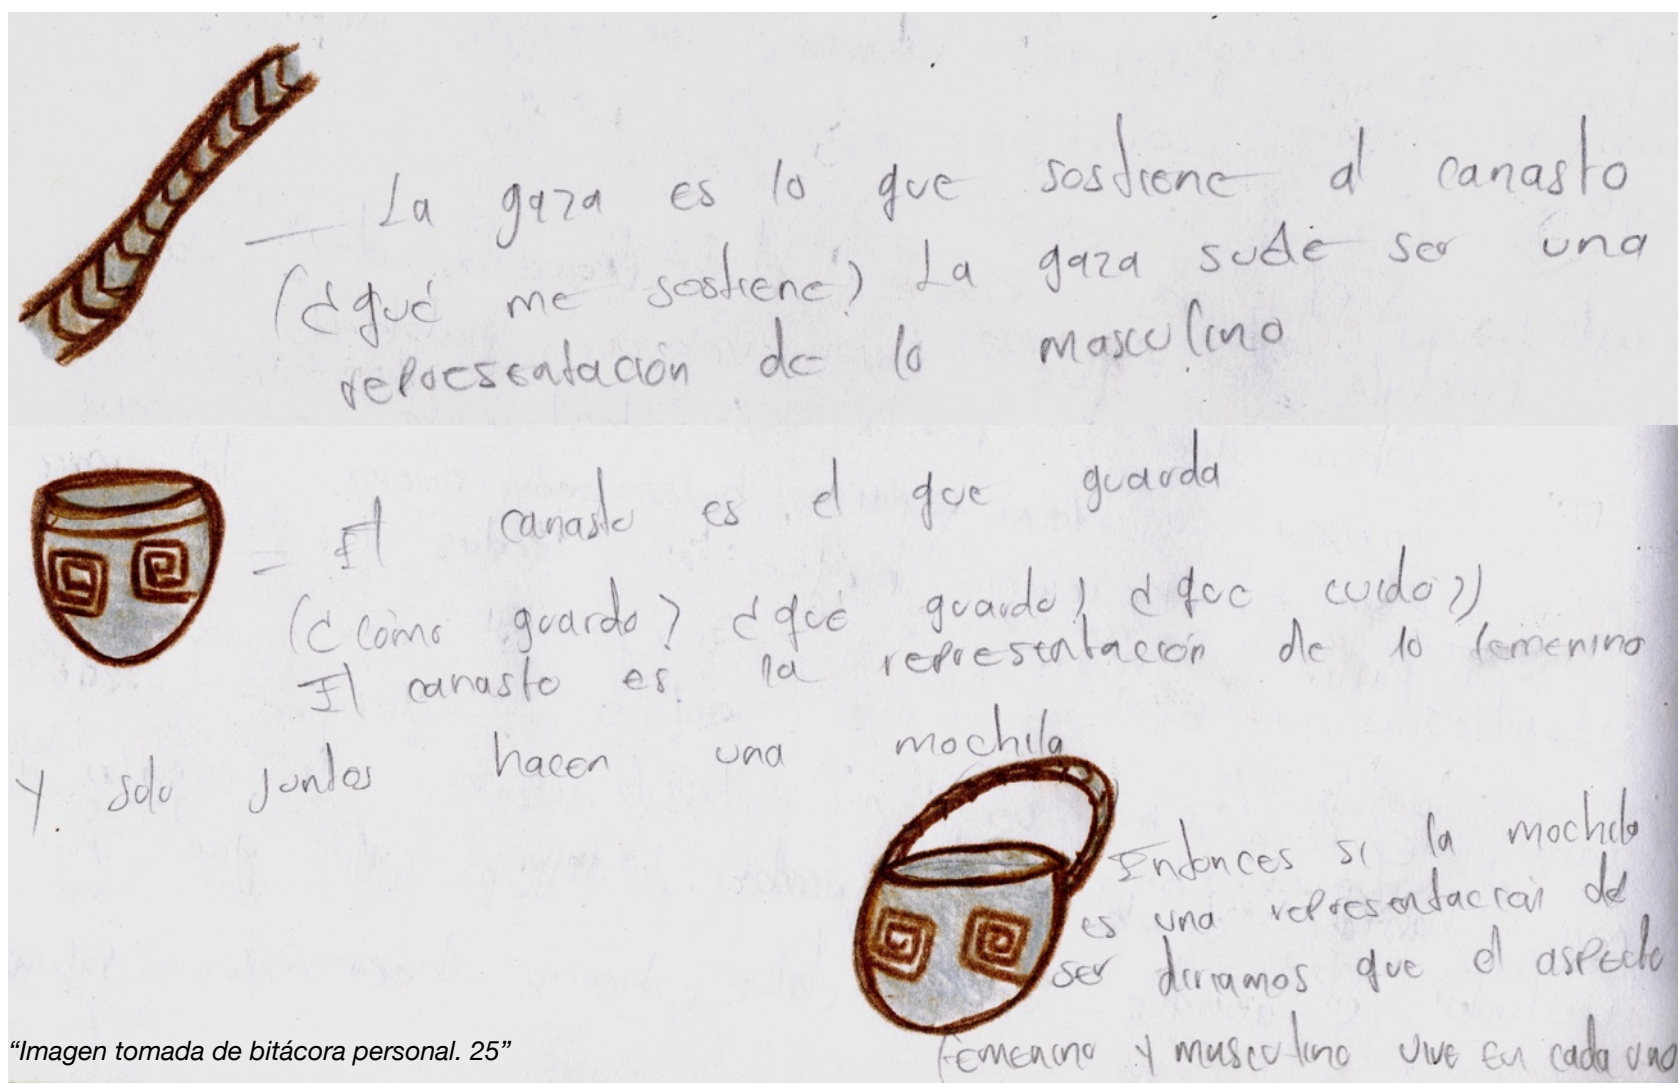 La gaza es lo que sostiene al canasto
(¿qué me sostiene?) La gaza suele ser una
representación de lo masculino
El canasto es el que guarda
(¿cómo guardo? ¿qué guardo? ¿que cuido?)
El canasto es la representación de lo femenino
Y solo juntos hacen una mochila
Entonces si la mochila
es una representación del
ser diriamos que el aspecto
femenino y masculino vive en cada uno
“Imagen tomada de bitácora personal. 25”